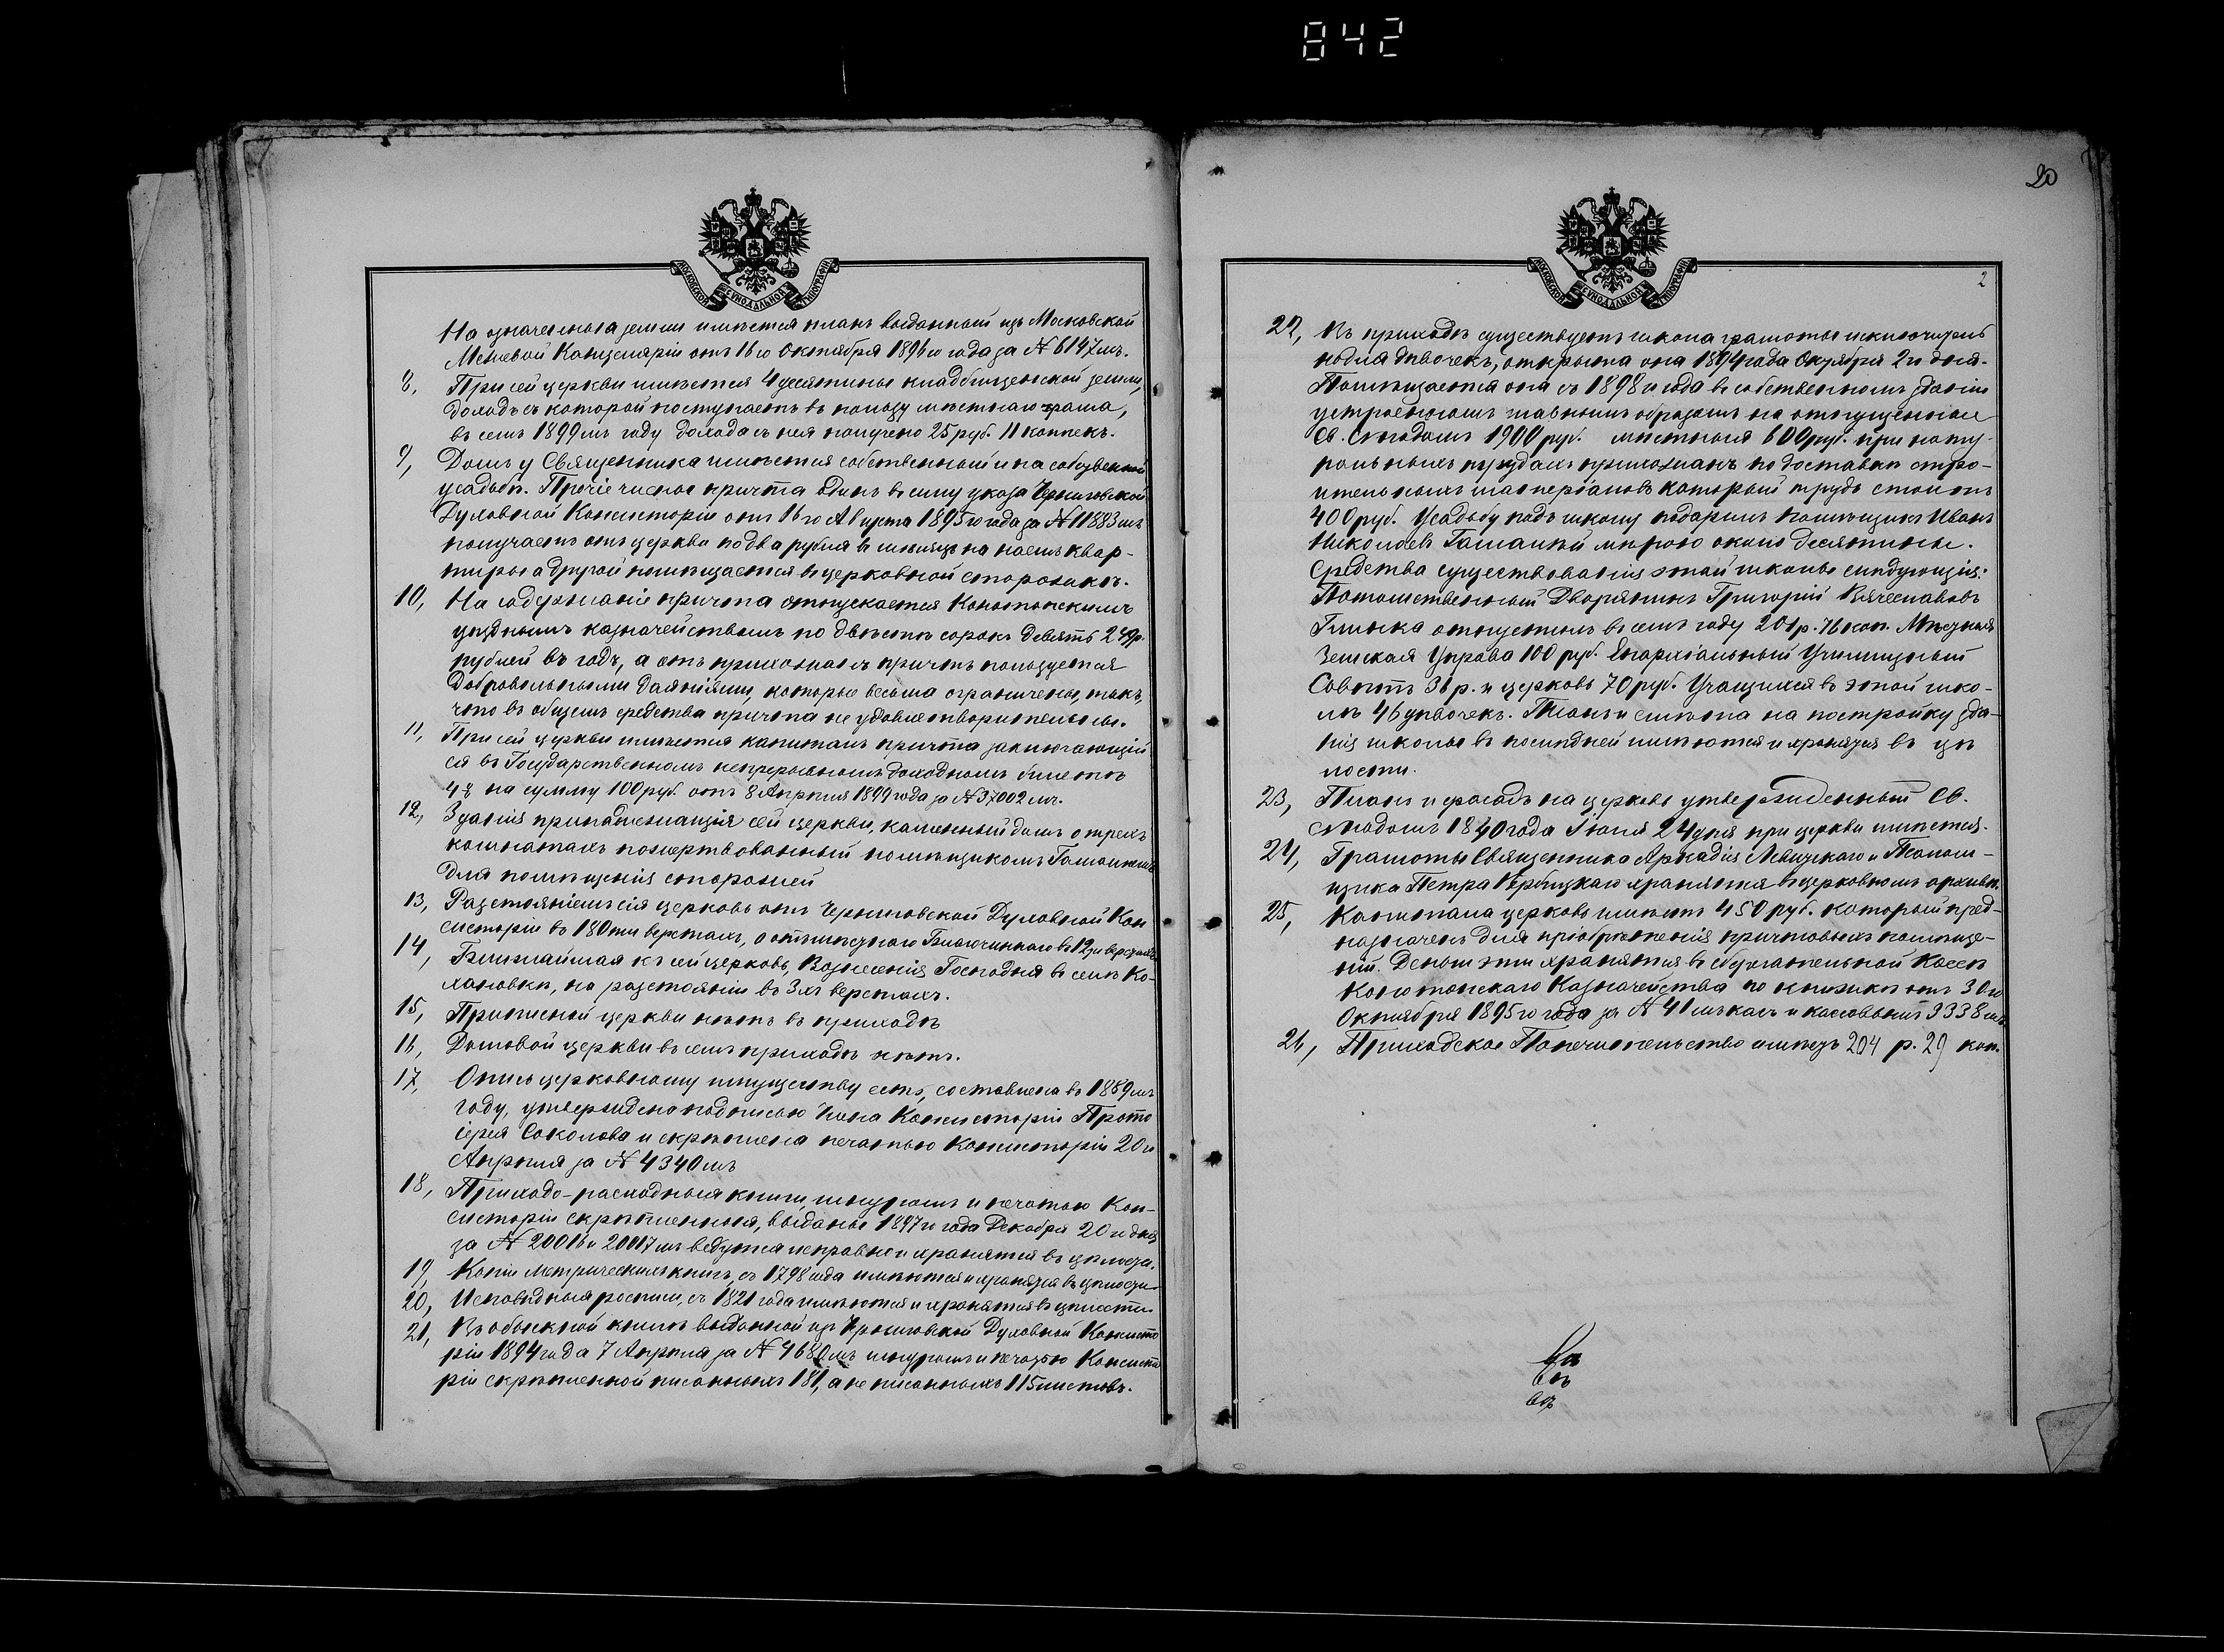 842
20
МОСКОВСКОЙ СѴНОДАЛЬНОЙ ТИПОГРАФІИ
На означенныя земли имѣется планъ выданный изъ Московской
Межевой Канцеляріи отъ 16го Октября 1896го года за № 6147мъ.
8, При сей церкви имѣется 4 десятины кладбищенской земли,
доходъ съ которой поступаетъ въ пользу мѣстнаго храма,
въ семъ 1899мъ году дохода съ нея получено 25 руб. 11 копѣекъ.
9, Домъ у Священника имѣется собственный и на собственной
усадьбѣ. Прочіе члены причта одинъ въ силу указа Черниговской
Духовной Консисторіи отъ 16го Августа 1895го года за № 11883мъ
получаетъ отъ церкви по два рубля въ мѣсяцъ на наемъ квар-
тиры а другой помѣщается въ церковной сторожкѣ.
10, На содержаніе причта отпускается Конотопскимъ
уѣзднымъ казначействомъ по двѣстѣ сорокъ девять 249р.
рублей въ годъ, а отъ прихожанъ причтъ пользуется
добровольными даяніями, которые весьма ограничены, такъ,
что въ общемъ средства причта не удовлетворительны.
11, При сей церкви имѣется капиталъ причта заключающій
ся въ Государственномъ непрерывномъ доходномъ билетѣ
4% на сумму 100 руб. отъ 8 Апрѣля 1899 года за № 37002мъ.
12, Зданія принадлежащія сей церкви, каменный домъ о трехъ
комнатахъ пожертвованный помѣщикомъ
для помѣщенія сторожей
13, Разстояніемъ сія церковь отъ Черниговской Духовной Кон
систоріи въ 180ти верстахъ, а отъ мѣстнаго Благочиннаго въ 12ти верстахъ
14, Ближайшая къ сей церковь, Вознесенія Господня въ селѣ Ко-
хановкѣ, на разстояніи въ 3хъ верстахъ.
15, Приписной церкви нѣтъ въ приходѣ
16, Домовой церкви въ семъ приходѣ нѣтъ.
17, Опись церковному имуществу есть, составлена въ 1889мъ
году, утверждена подписью Члена Консисторіи Прото
іерея Соколова и скрѣплена печатью Консисторіи 20го
Апрѣля за № 4340мъ
18, Приходо-расходныя книги, шнуромъ и печатью Кон-
систоріи скрѣпленныя, выданы 1897го года Декабря 20го дня
за № 20016 и 20017мъ ведутся исправно и хранятся въ цѣлости.
19, Копіи Метрическихъ книгъ, съ 1798 года имѣются и хранятся въ цѣлости
20, Исповѣдныя росписи, съ 1821 года имѣются и хранятся въ цѣлости
21, Въ обыскной книгѣ выданной изъ Черниговской Духовной Консисто
ріи 1894 года 7 Апрѣля за № 4680мъ шнуромъ и печатью Консисто
ріи скрѣпленной писанныхъ 181, а не писанныхъ 115 листовъ.
МОСКОВСКОЙ СѴНОДАЛЬНОЙ ТИПОГРАФІИ
2
22, Въ приходѣ существуетъ школа грамоты исключитель
но для дѣвочекъ, открыта она 1894 года Октября 2го дня.
Помѣщается она съ 1898го года въ собственномъ зданіи
устроенномъ главнымъ образомъ на отпущенные
Св. Сѵнодомъ 1900 руб. мѣстныя 600 руб. при нату-
ральныхъ трудахъ прихожанъ по доставкѣ стро-
ительныхъ матеріаловъ который трудъ стоитъ
400 руб. Усадьбу подъ школу подарилъ помѣщикъ Иванъ
Николаевъ мѣрою около десятины.
Средства существованія этой школы слѣдующія:
Потомственный Дворянинъ Григорій Вячеславовъ
Глинка отпустилъ въ семъ году 201 р. 76 коп. Мѣстная
Земская Управа 100 руб. Епархіальный Училищный
Совѣтъ 36 р. и церковь 70 руб. Учащихся въ этой шко-
лѣ 46 дѣвочекъ. Планъ и смѣта на постройку зда-
нія школы въ послѣдней имѣются и хранятся въ цѣ
лости.
23, Планъ и фасадъ на церковь утвержденный Св.
Сѵнодомъ 1840 года Іюня 24 дня при церкви имѣется.
24, Грамоты Священника Аркадія Левицкаго и Псалом-
щика Петра Вербицкаго хранятся въ церковномъ архивѣ.
25, Капитала церковь имѣетъ 450 руб. который пред-
назначенъ для пріобрѣтенія причтовыхъ помѣще-
ній. Деньги эти хранятся въ сберегательной Кассѣ
Конотопскаго Казначейства по книжкѣ отъ 30го
Октября 1895го года за № 41 мъ касъ и кассовымъ 3338мъ
26, Приходское Попечительство имѣетъ 204 р. 29 коп.